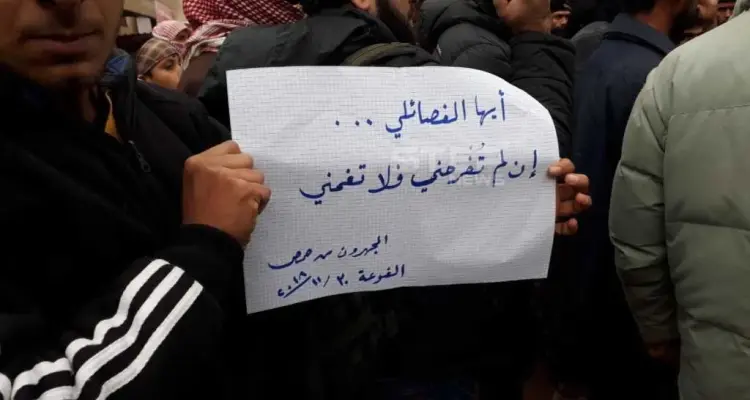 أيها الفصائلي ...
إن لم تُفرحني فلا تغمني
المهجرون من حمص
الفوعة ٣٠/١١/٢٠١٨